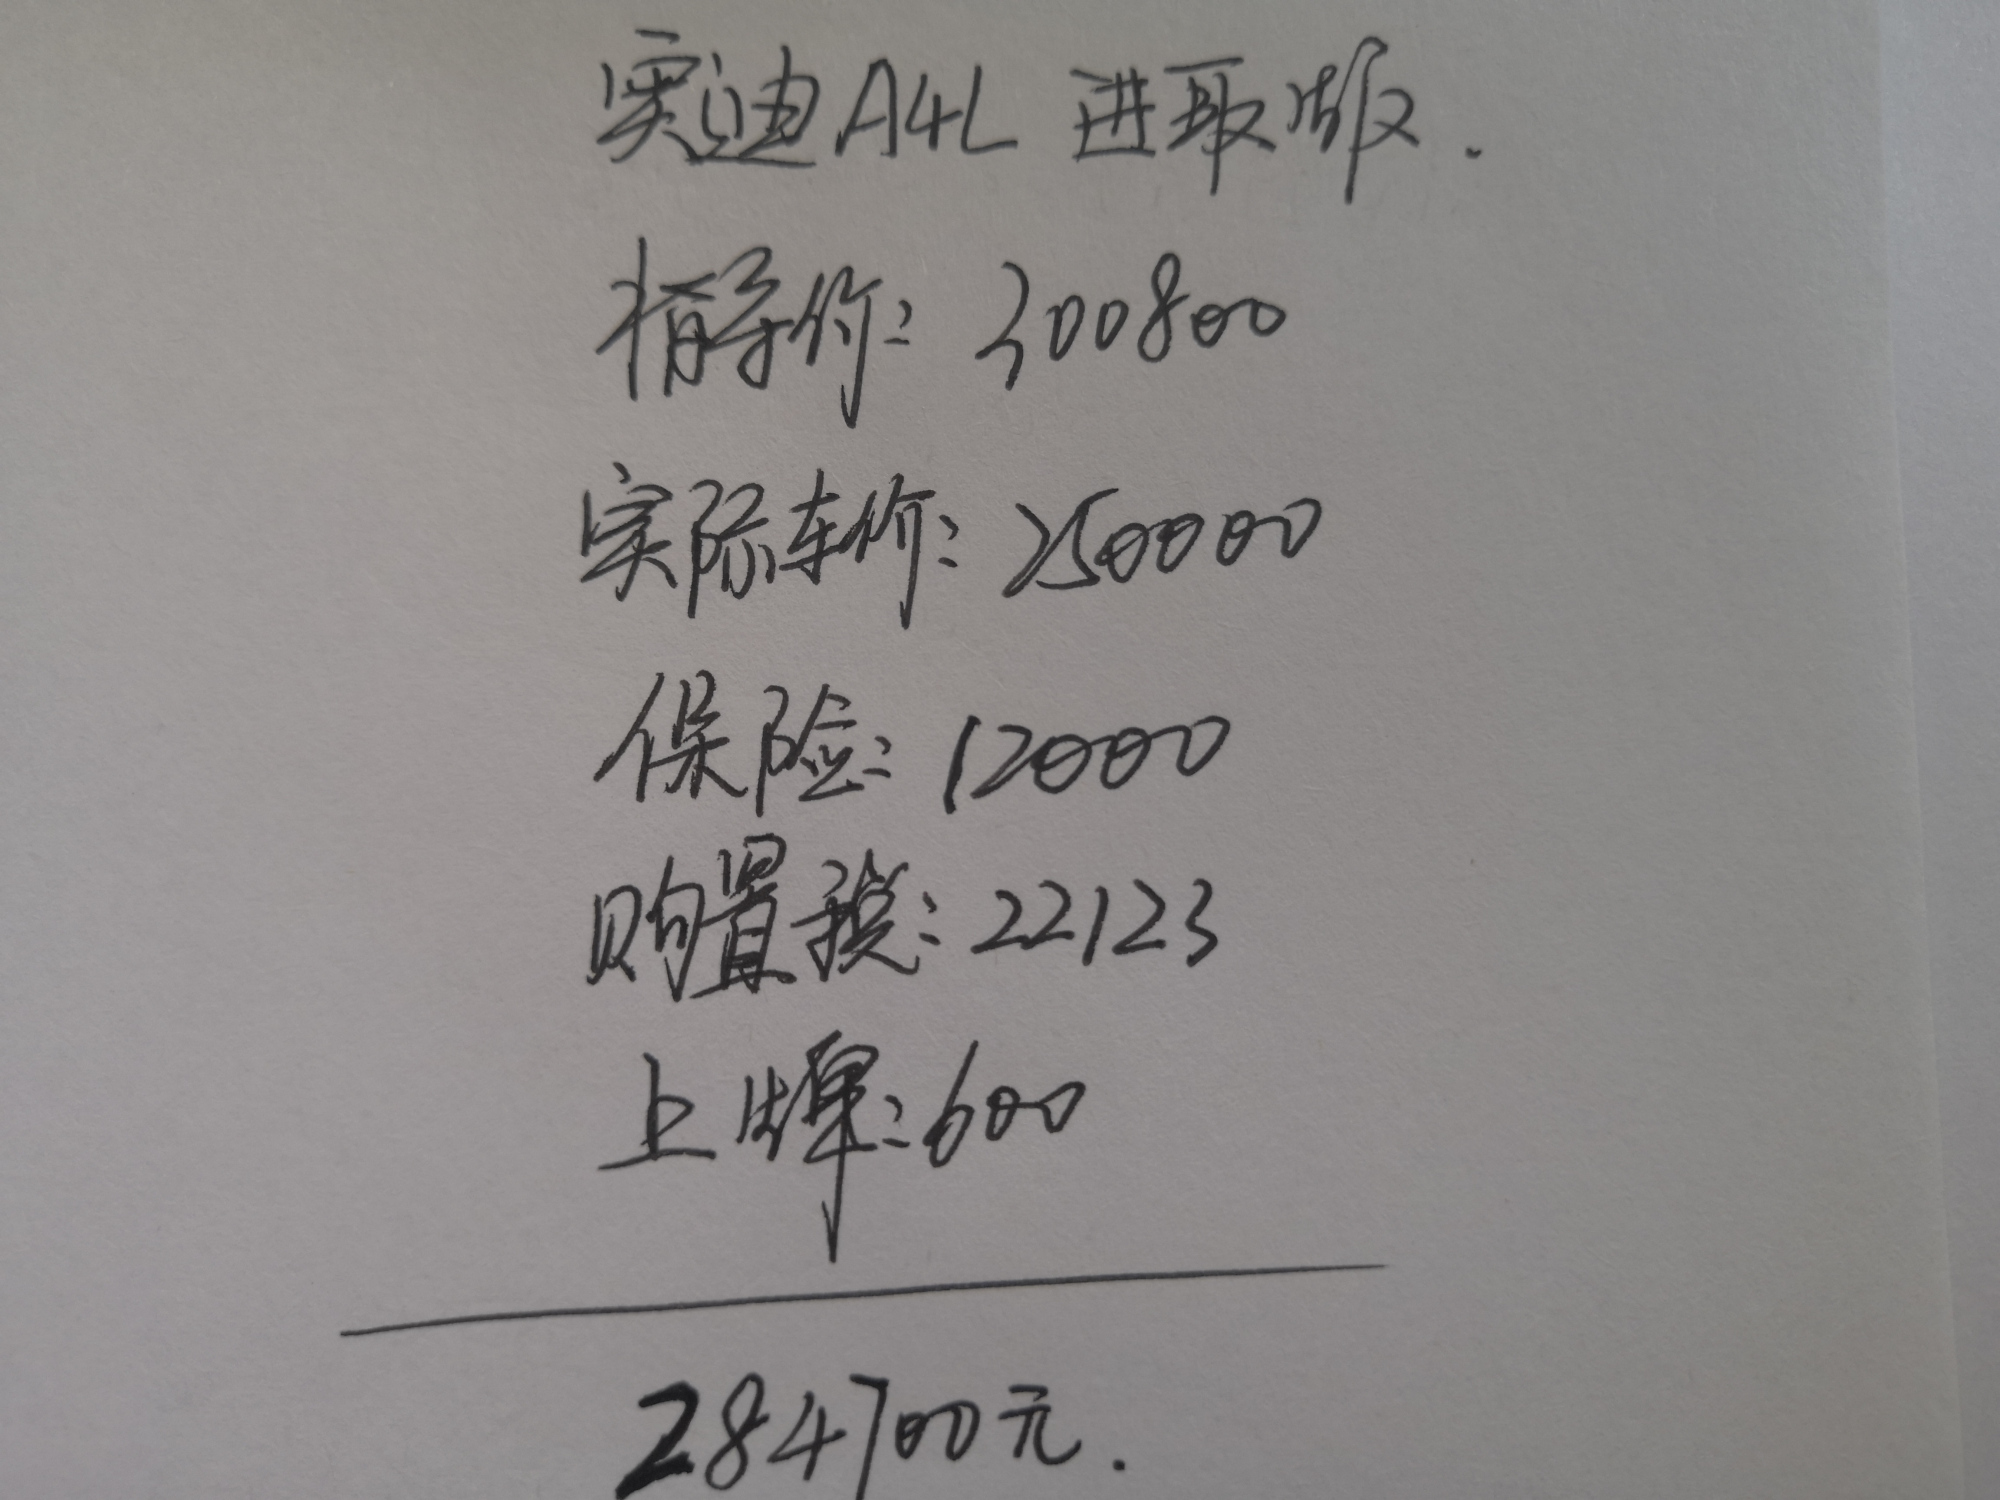 奥迪A4L 进取版.
指导价: 300800
实际车价: 250000
保险: 12000
购置税: 22123
上牌: 600
284700元.